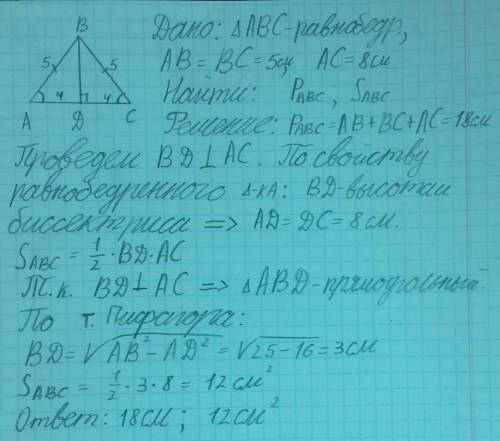 B
5 5
4 4
A D C
Дано: △ABC-равнобедр.,
AB = BC = 5см, AC = 8см
Найти: P_ABC, S_ABC
Решение: P_ABC = AB+BC+AC = 18см
Проведем BD⊥AC. По свойству
равнобедренного △-ка: BD-высота и
биссектриса => AD = DC = 8см.
S_ABC = 1/2 · BD · AC
Т.к. BD⊥AC => △ABD-прямоугольный.
По т. Пифагора:
BD = √(AB² - AD²) = √(25-16) = 3см
S_ABC = 1/2 · 3 · 8 = 12см²
Ответ: 18см; 12см²